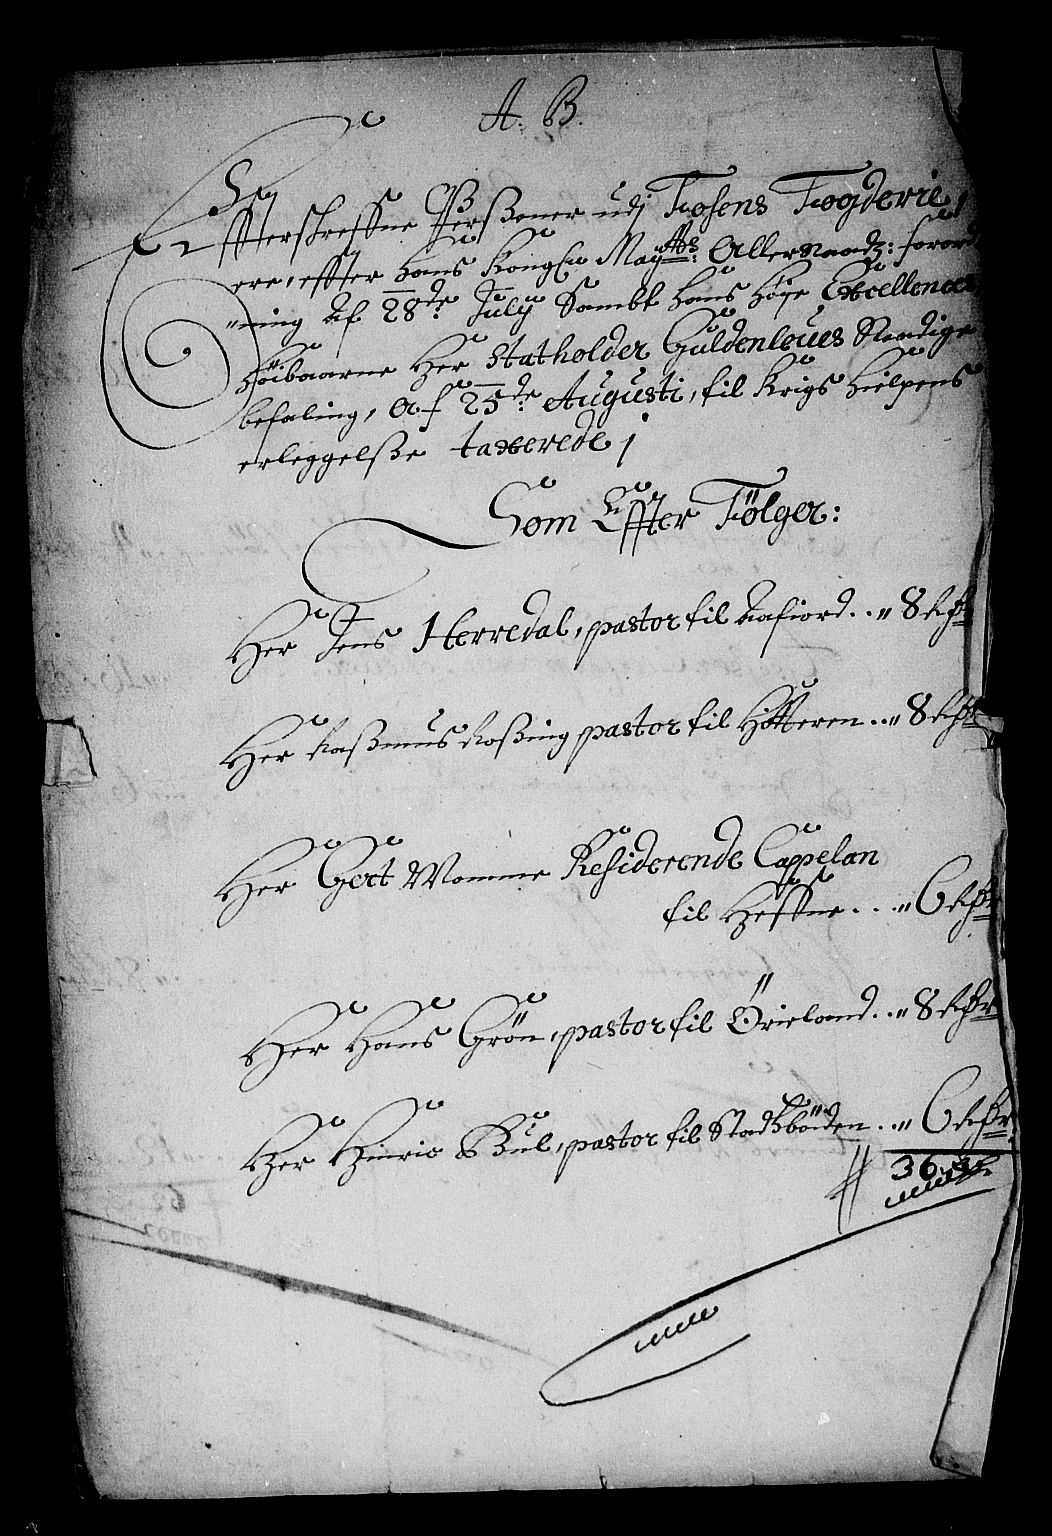 A. B.
Effterskreffne Perßoner udj Fosens Fogderie
ere, effter hans Kongl: Maytts: Allernaadg: forord
"ning Af 28de July Sambt hans høye Excellences
höibaarne Her Statholder Güldenleues Naadige
befaling, af 25de Augusti, til Krigs hielpens
erleggelße taxerede /
Som Effter Fölger:
Her Jens Herredal, pastor til Aafiord .. " 8 Rdr
Her Raßmus Roßing pastor til Hötteren .. " 8 Rdr
Her Gert Momme Residerende Cappelan
til Heffne ... " 6 Rdr
Her Hans Grön, pastor til Örieland .. " 8 Rdr
Her Hinric Bul, pastor til Stadßböiden .. " 6 Rdr
36